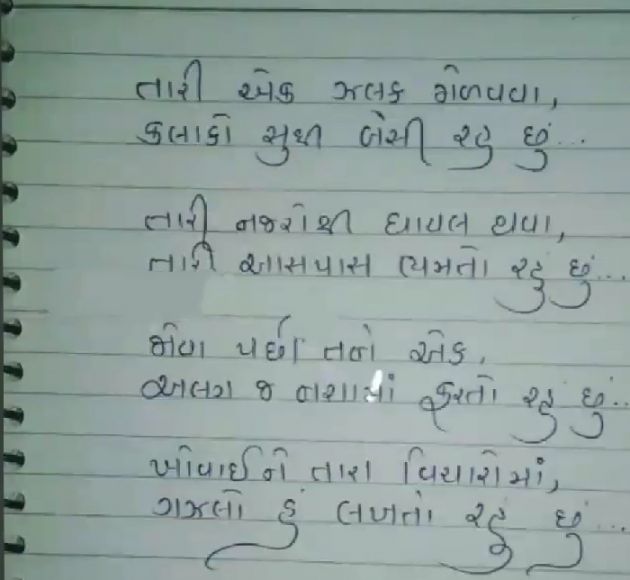 તારી એક ઝલક મેળવવા,
કલાકો સુધી બેસી રહુ છું...
તારી નજરોથી ઘાયલ થવા,
તારી આસપાસ ભમતો રહું છું...
જોવા પછી તને એક,
અલગ જ નશામાં ફરતો રહું છું..
ખોવાઈને તારા વિચારોમાં,
ગઝલો હું લખતો રહુ છુ...